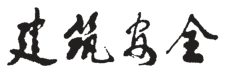 建筑安全